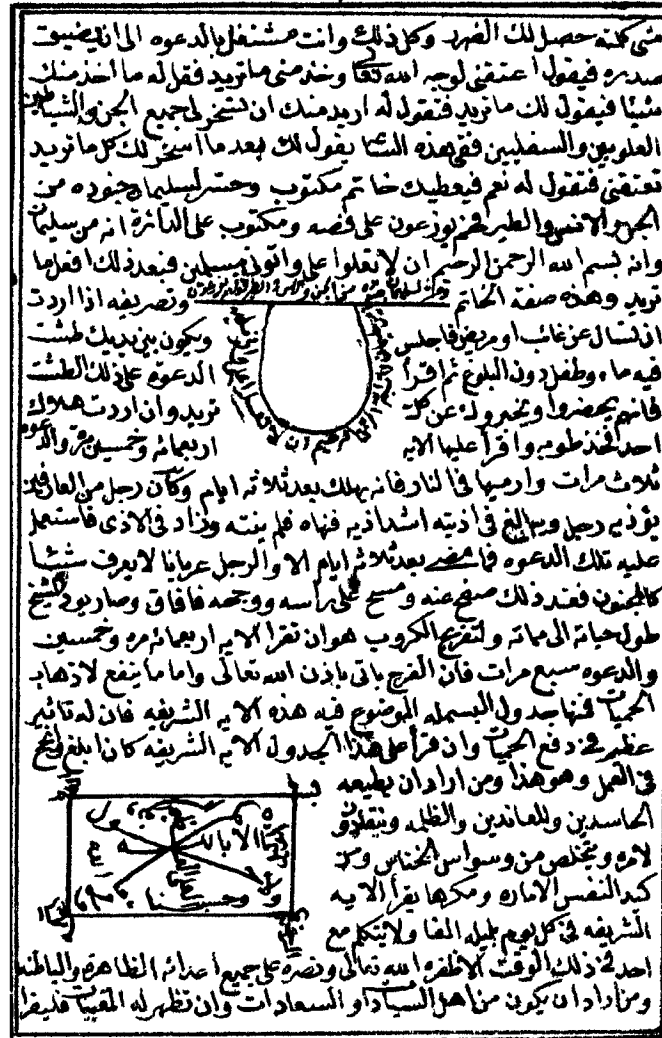 متى كلمته حصل لك الضرر وكل ذلك وانت مشتغل بالدعوه الى ان يضيق
صدره فيقول اعتقني لوجه الله تعالى وخذ مني ما تريد فقل له ما اخذ منك
شيئا فيقول لك ما تريد فتقول له اريد منك ان تسخر لي جميع الجن والشياطين
العلويين والسفليين ففي هذه الساعة يقول لك بعد ما اسخر لك كل ما تريد
تعتقني فتقول له نعم فيعطيك خاتم مكتوب وحشر لسليمان جنوده من
الجن والانس والطير فهم يوزعون على فصه ومكتوب على الدائرة انه من سليمان
وانه بسم الله الرحمن الرحيم ان لا تعلوا علي واتوني مسلمين فبعد ذلك افعل ما
تريد وهذه صفة الخاتم
وتصريفه اذا اردت
ان تسال عن غائب او مريض فاجلس
ويكون بين يديك طشت
فيه ماء وطفل دون البلوغ ثم اقرأ
الدعوه على ذلك الطشت
فانهم يحضروا ويخبروك عن كل ما
تريد وان اردت هلاك
احد فخذ طوبه واقرأ عليها الايه
اربعمائه وخمسين مره والدعوه
ثلاث مرات وارميها في النار فانه يهلك بعد ثلاثه ايام وكان رجل من العارفين
يؤذيه رجل ويبالغ في اذيته اشد اذيه فنهاه فلم ينته وزاد في الاذى فاستعمل
عليه تلك الدعوه فما مضى بعد ثلاثه ايام الا والرجل عريانا لا يعرف شيئا
كالمجنون فعند ذلك صفح عنه ومسح على راسه ووجهه فافاق وصار يود الشيخ
طول حياته الى مماته ولتفريج الكروب هو ان تقرأ الايه اربعمائه مره وخمسين
والدعوه سبع مرات فان الفرج ياتي باذن الله تعالى واما ما ينفع لاذهاب
الحميات فمنها جدول البسمله الموضوع فيه هذه الايه الشريفه فان له تاثير
عظيم في دفع الحميات وان قرأ على هذا الجدول الايه الشريفه كان ابلغ وانجح
في العمل وهو هذا ومن اراد ان يطيعه
الحاسدين والمعاندين والظلمه وينقادون
لامره ويتخلص من وسواس الخناس ومن
كيد النفس الاماره ومكرها يقرأ الايه
الشريفه في كل يوم وليله الفا ولا يتكلم مع
احد في ذلك الوقت الا ظفره الله تعالى ونصره على جميع اعدائه الظاهرة والباطنه
ومن اراد ان يكون من اهل السياده والسعادات وان تظهر له المغيبات فليقرا